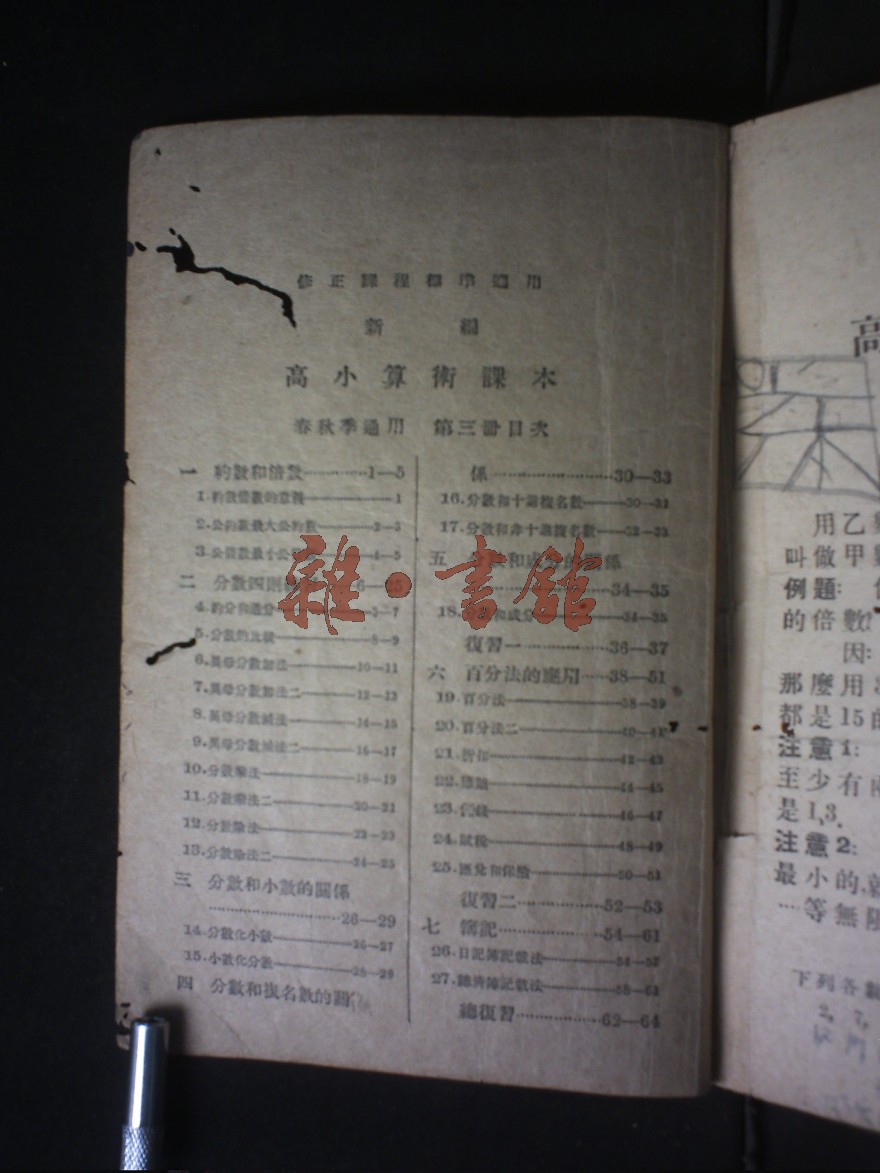 修正課程標準適用
新編
高小算術課本
春秋季適用 第三册目次
一 約數和倍數…………1—5
1.約數倍數的意義————1
2.公約數最大公約數———2—3
3.公倍數最小公———4—5
二 分數四則 6—25
4.約分和通分———6—7
5.分數的比較————8—9
6.異母分數加法————10—11
7.異母分數加法二————12—13
8.異母分數減法————14—15
9.異母分數減法二————16—17
10.分數乘法————18—19
11.分數乘法二————20—21
12.分數除法————22—23
13.分數除法二————24—25
三 分數和小數的關係
…………………26—29
14.分數化小數————26—27
15.小數化分數————28—29
四 分數和複名數的關
係…………………30—33
16.分數和十進複名數———30—31
17.分數和非十進複名數———32—33
五 分 和成分的關係
…………34—35
18. 和成分———34—35
復習一…………36—37
六 百分法的應用……38—51
19.百分法————38—39
20.百分法二————40—41
21.折扣————42—43
22. ————44—45
23. ————46—47
24.賦稅————48—49
25.匯兌和保險————50—51
復習二…………52—53
七 簿記…………54—61
26.日記簿記載法————54—57
27. 簿記載法————58—61
總復習…………62—64
雜·書舘
高
用乙
叫做甲
例題:
的倍數?
因:
那麼用
都是15的
注意1:
至少有
是1,3.
注意2:
最小的,
…等無限
下列各
2, 7,